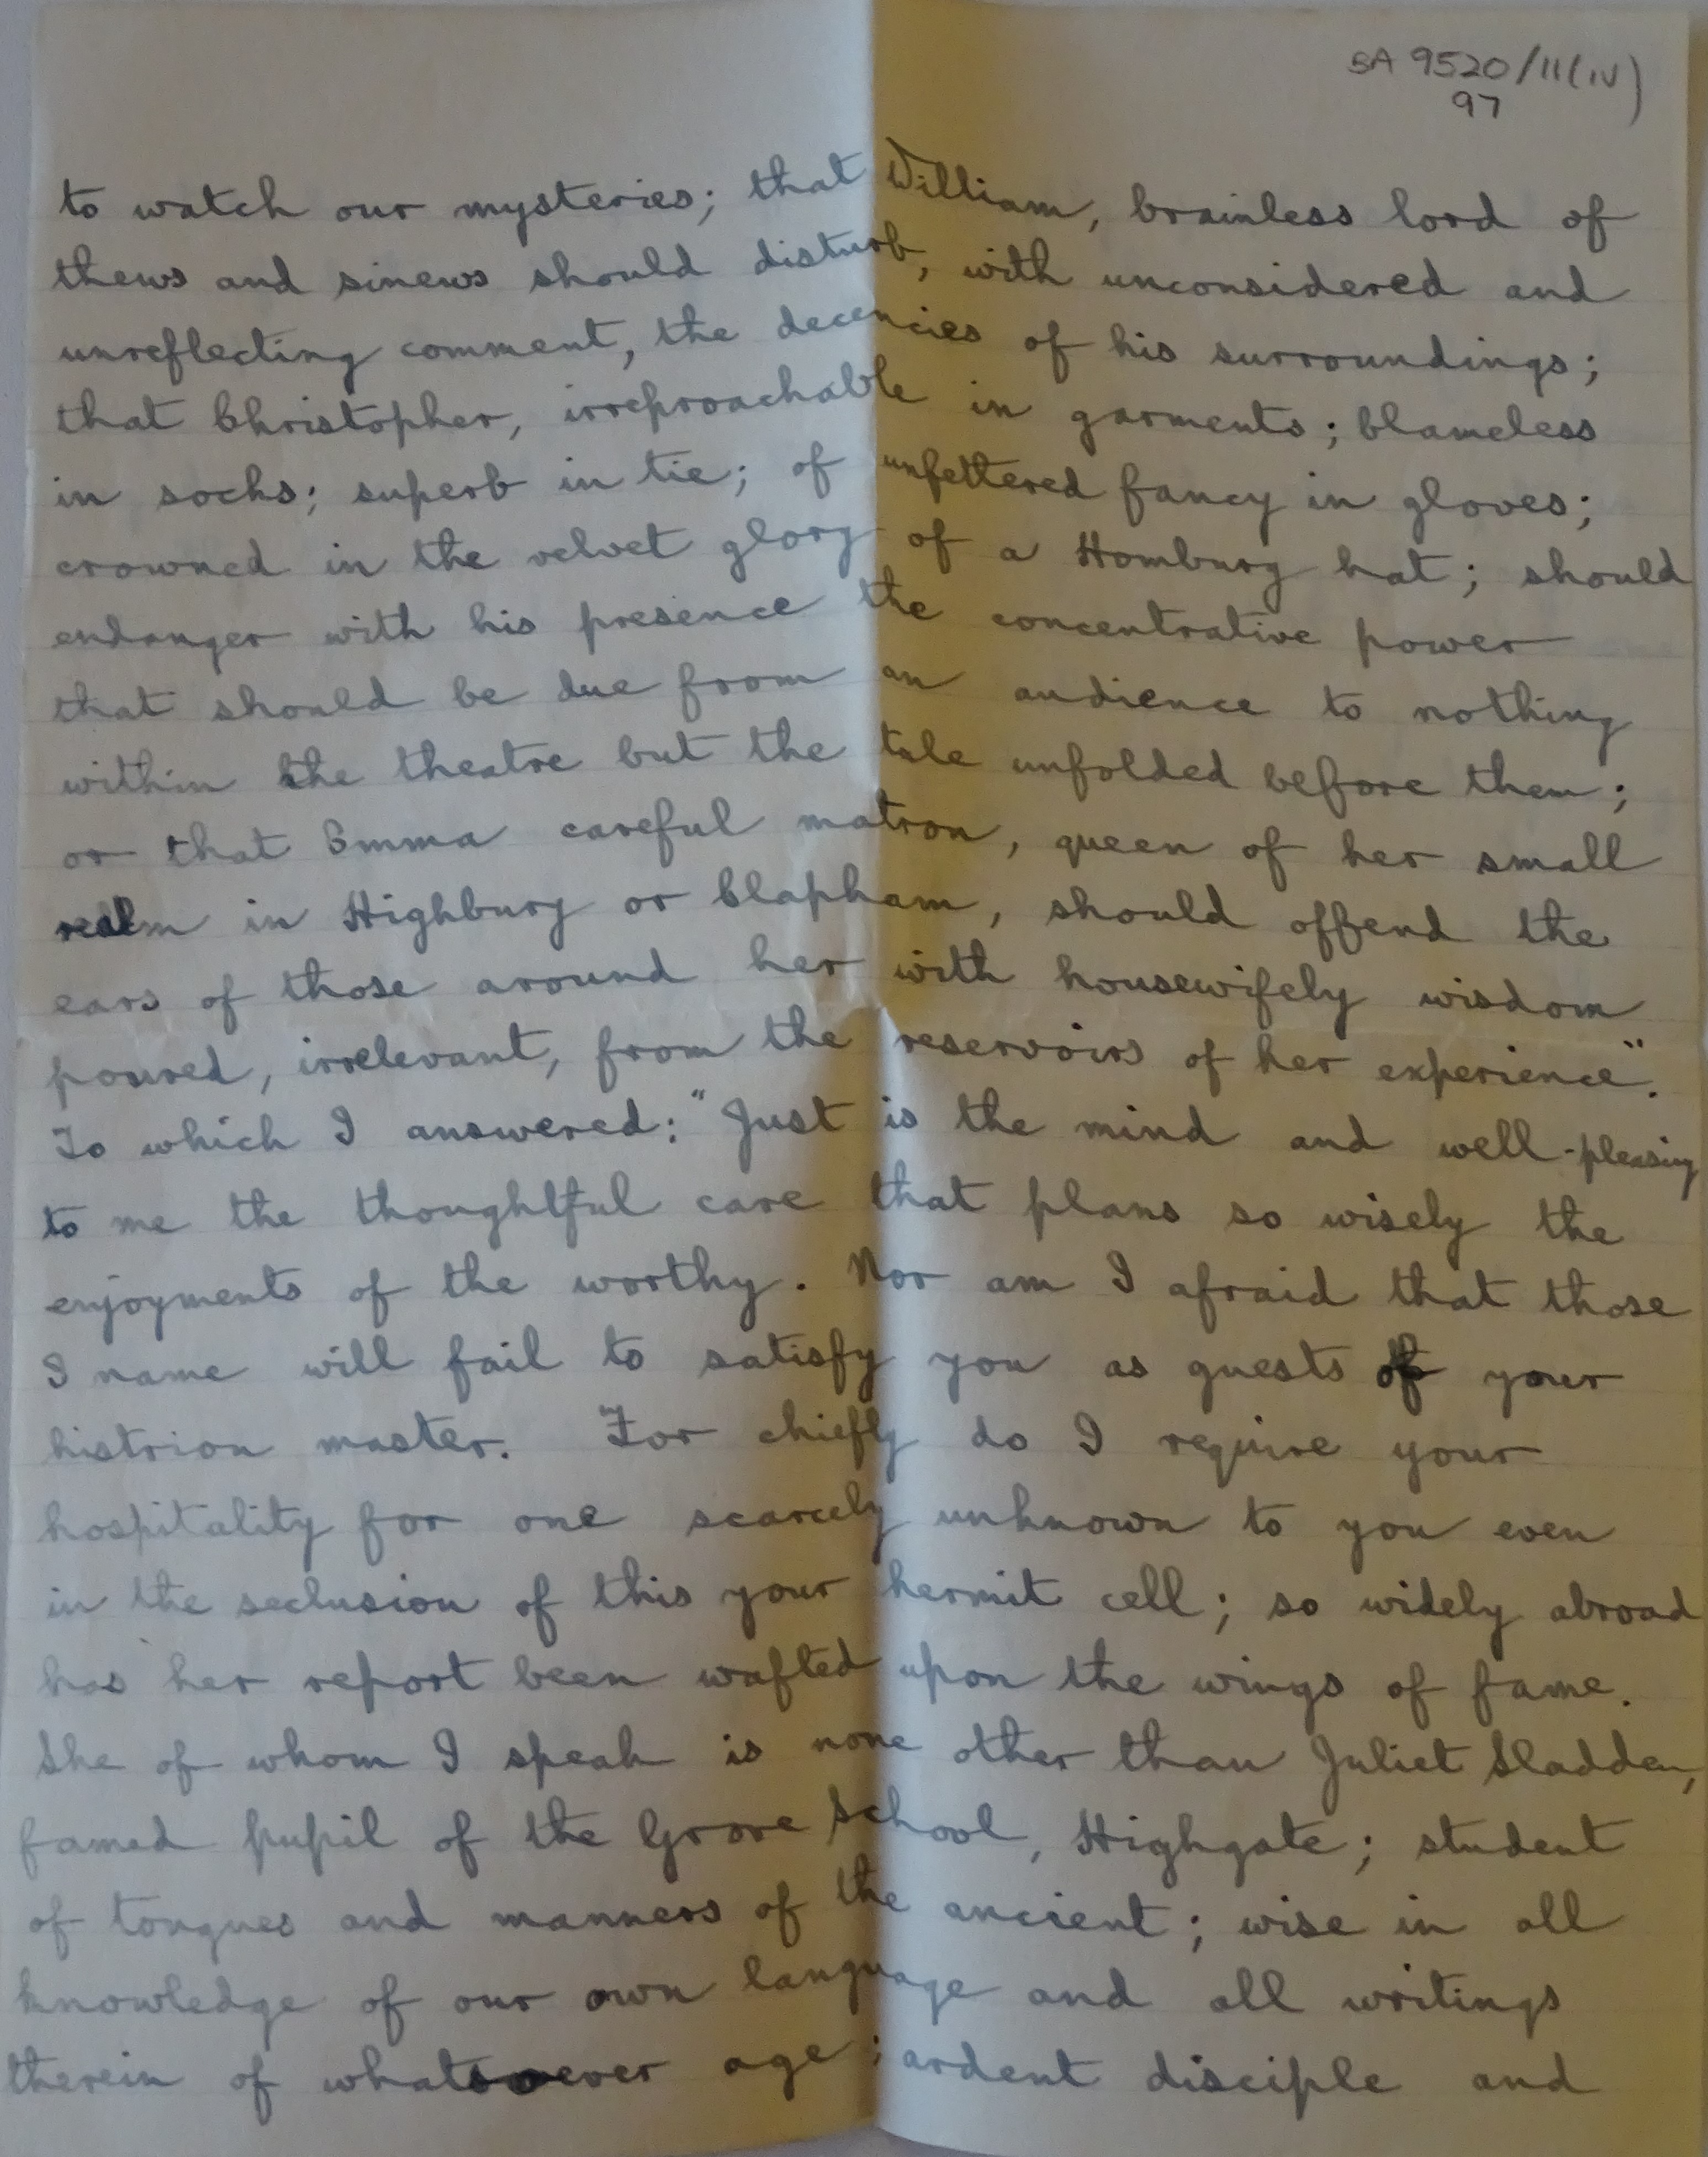 SA 9520/11(iv)
97
to watch our mysteries; that William, brainless lord of
thews and sinews should disturb, with unconsidered and
unreflecting comment, the decencies of his surroundings;
that Christopher, irreproachable in garments; blameless
in socks; superb in tie; of unfettered fancy in gloves;
crowned in the velvet glory of a Homburg hat; should
endanger with his presence the concentrative power
that should be due from an audience to nothing
within the theatre but the tale unfolded before them;
or that Emma careful matron, queen of her small
realm in Highbury or Clapham, should offend the
ears of those around her with housewifely wisdom
poured, irrelevant, from the reservoirs of her experience".
To which I answered: "Just is the mind and well-pleasing
to me the thoughtful care that plans so wisely the
enjoyments of the worthy. Nor am I afraid that those
I name will fail to satisfy you as guests of your
histrion master. For chiefly do I require your
hospitality for one scarcely unknown to you even
in the seclusion of this your hermit cell; so widely abroad
has her report been wafted upon the wings of fame.
She of whom I speak is none other than Juliet Sladden,
famed pupil of the Grove School, Highgate; student
of tongues and manners of the ancient; wise in all
knowledge of our own language and all writings
therein of whatsoever age; ardent disciple and